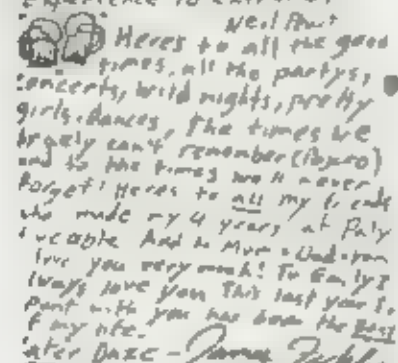 Neil Peart
Heres to all the good
times, all the partys,
concerts, wild nights, pretty
girls, dances, the times we
can't remember
and to the times we'll never
forget! Heres to all my friends
who made my 4 years at Paly
And to Mom + Dad
love you very much! To Emily I
always love you This last year I
with you has been the best
of my life.
later Daze - James